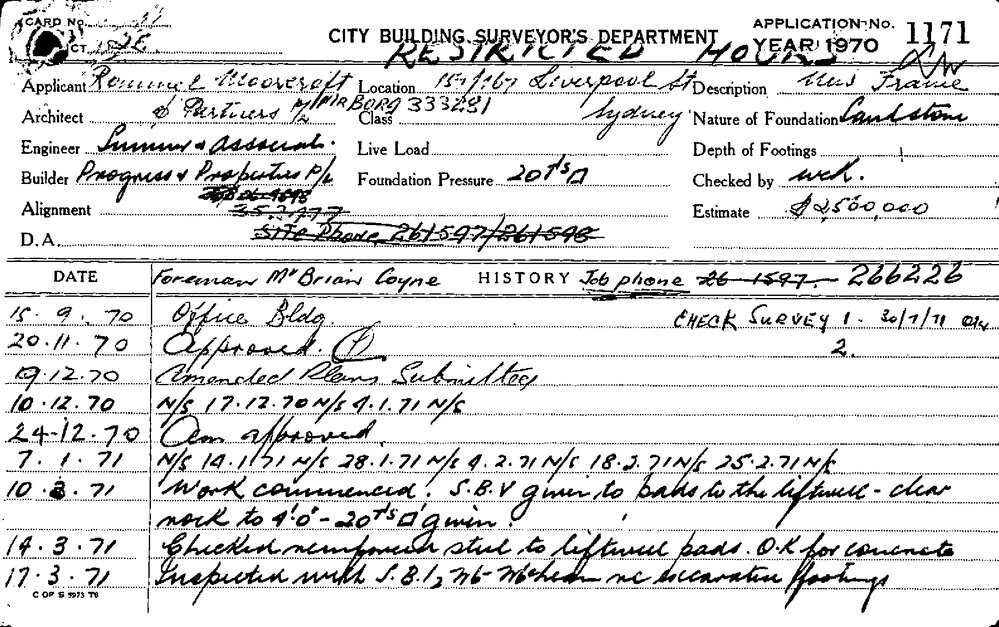 CARD No.
CITY BUILDING SURVEYOR'S DEPARTMENT
APPLICATION No. 1171
YEAR 1970
RESTRICTED HOURS
Applicant Rommel Moorcroft Location 157/167 Liverpool St Description New Frame
Architect & Partners P/L 333231 Class Sydney Nature of Foundation Sandstone
Engineer Sumner & Associates. Live Load Depth of Footings
Builder Progress & Properties P/L Foundation Pressure 20 Ts □ Checked by
Alignment Estimate $2,500,000
D.A. Site Phone 261597/261598
DATE Foreman Mr Brian Coyne HISTORY Job phone 26-1597. 266226
15.9.70 Office Bldg. CHECK SURVEY 1. 30/7/71
20.11.70 Approved. 2.
12.70 Amended Plans Submitted
10.12.70 N/S 17.12.70 N/S 4.1.71 N/S
24-12.70 Am approved.
7.1.71 N/S 14.1.71 N/S 28.1.71 N/S 4.2.71 N/S 18.2.71 N/S 25.2.71 N/S
10.3.71 Work commenced. S.B.V given to pads to the liftwell - clear
rock to 4'.0" - 20 Ts □' given.
14.3.71 Checked steel to liftwell pads. O.K for concrete
17.3.71 Inspected with S.B.I, footings
C OF S 5973 T6